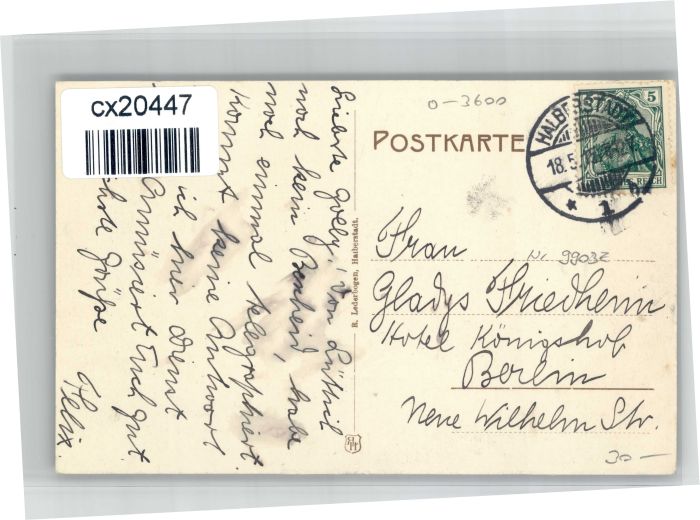 cx20447
0-3600
POSTKARTE
5
HALBERSTADT
18.5.
* 1
REICH
Liebste
von
noch kein Bescheid, habe
noch einmal telegraphiert.
Kommt keine Antwort
ich hier
Amüsiert Euch gut
Grüße
Felix.
R. Lederbogen, Halberstadt.
Frau
Nr 99032
Gladys Friedheim
Hotel Königshof
Berlin
Neue Wilhelm Str.
30-